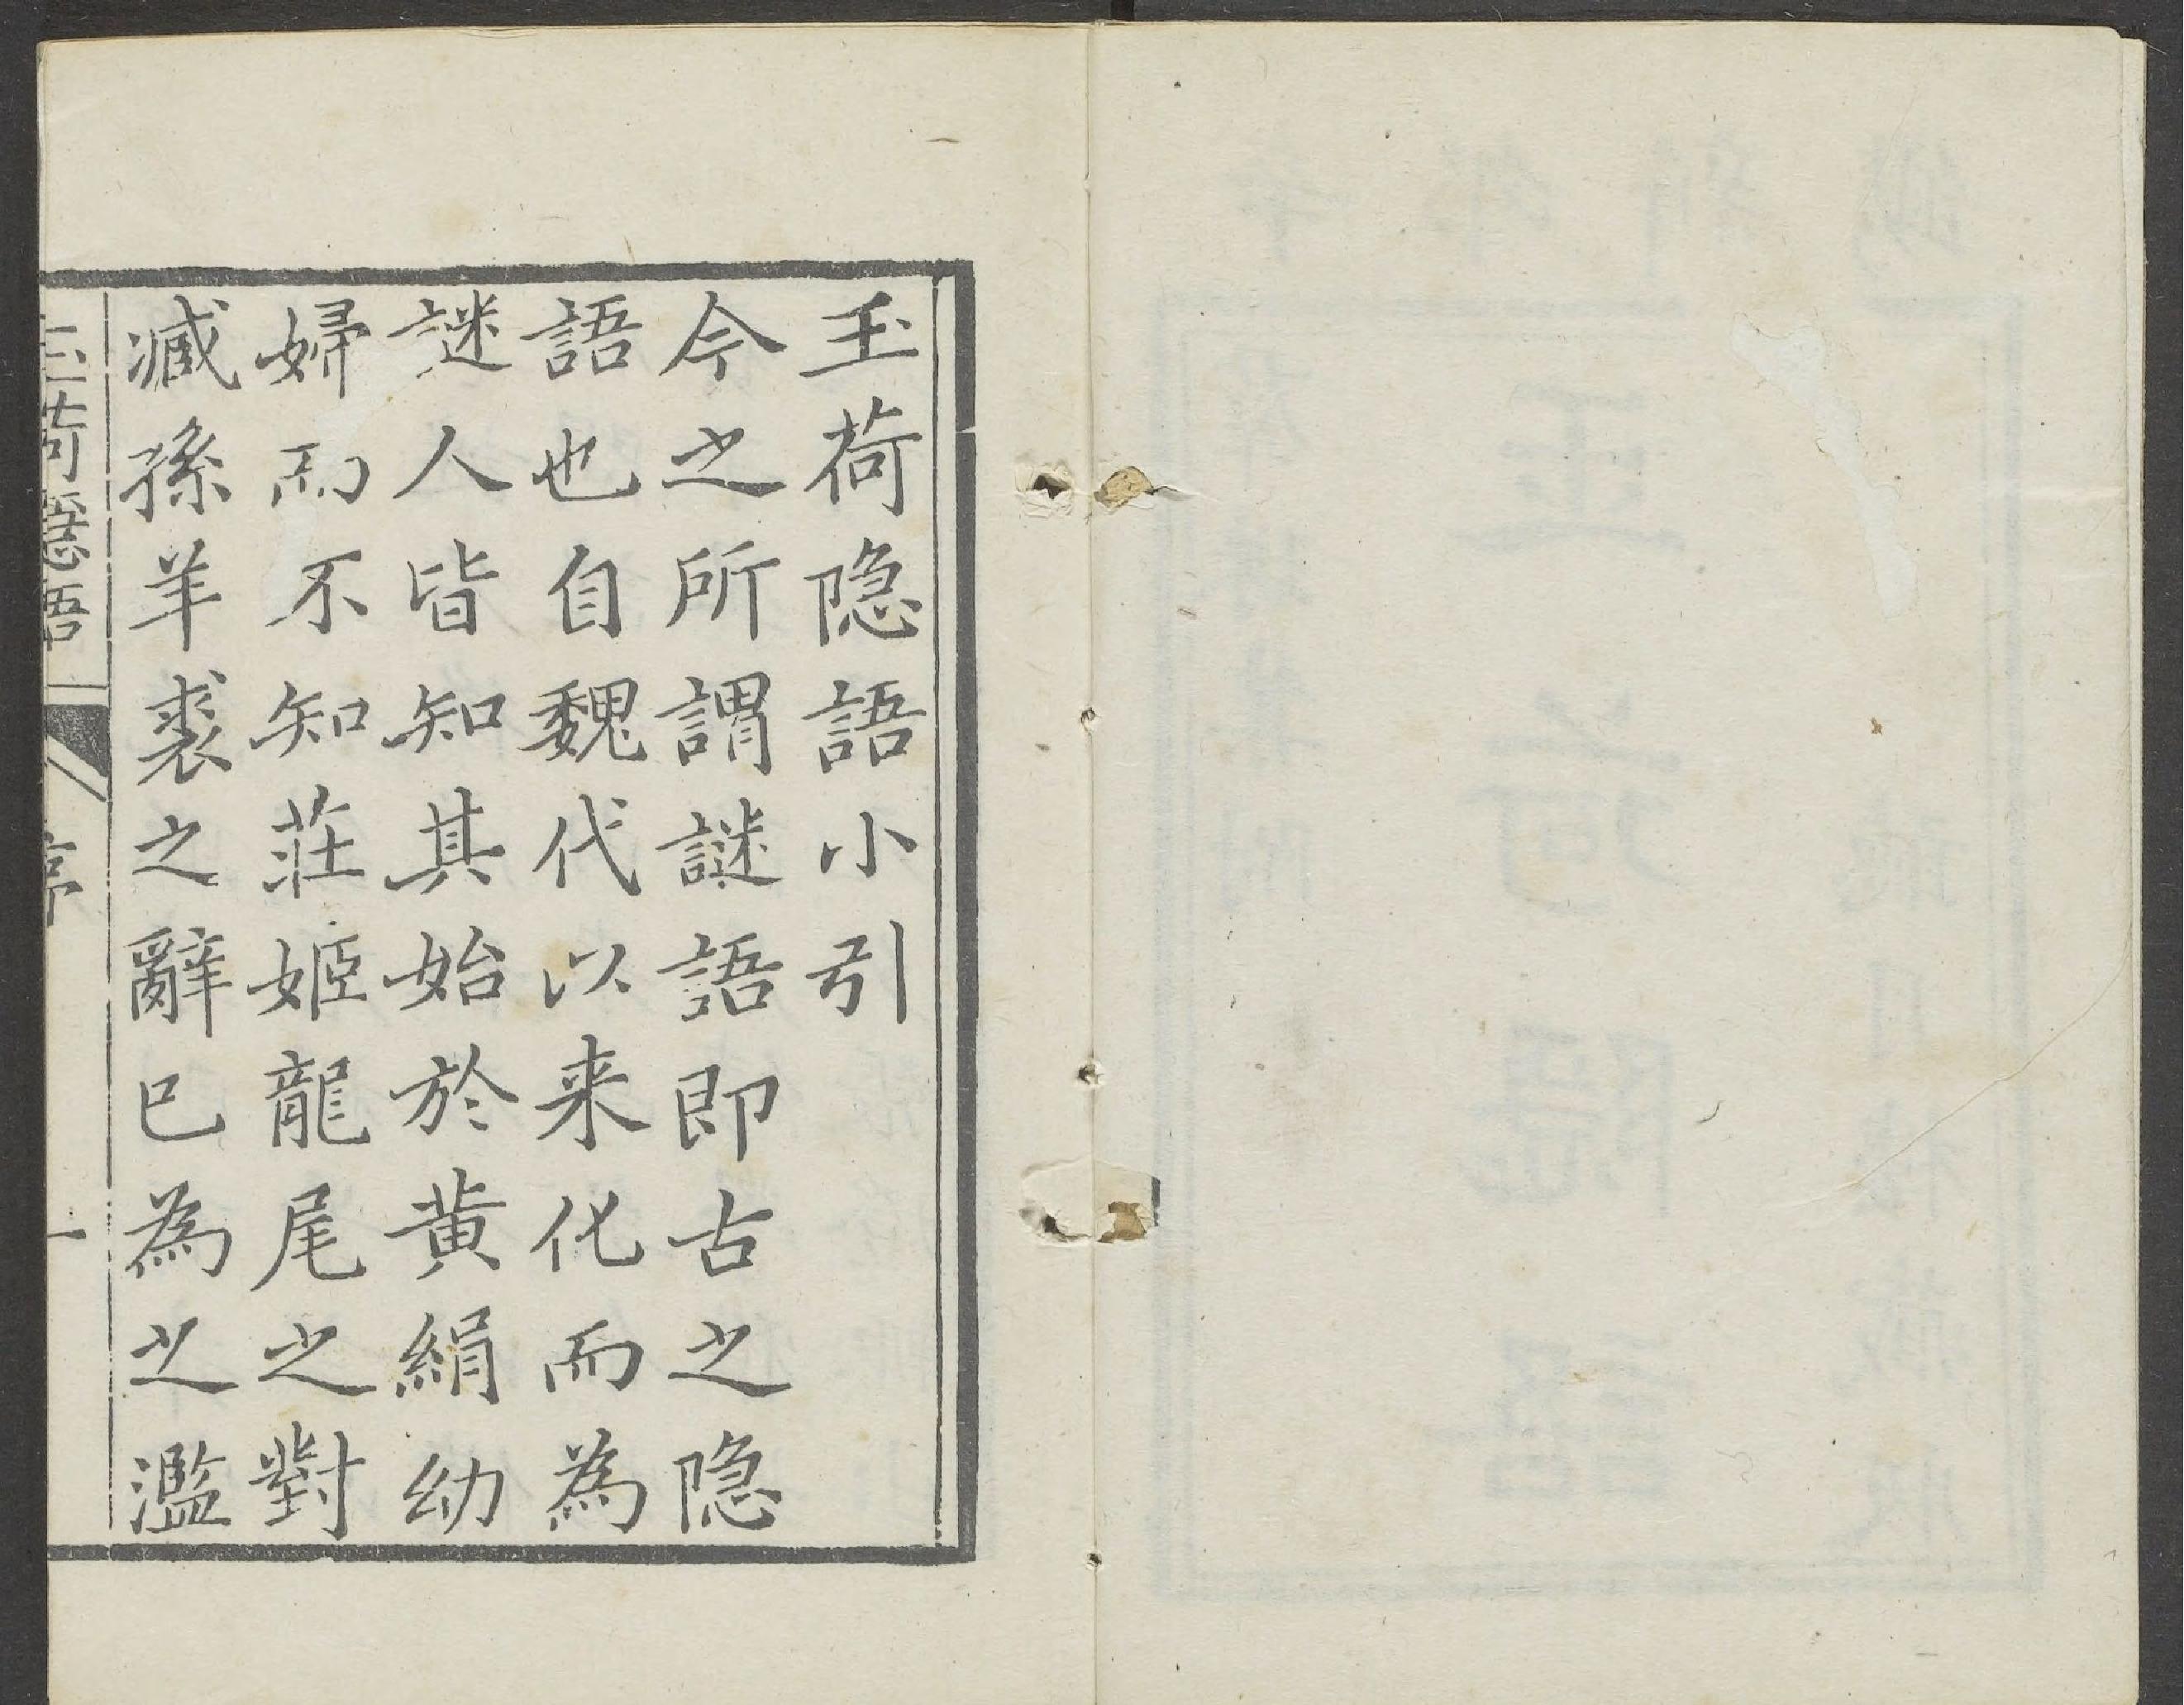 玉荷隐語小引
今之所謂謎語即古之隐
語也自魏代以来化而為
謎人皆知其始於黄絹幼
婦而不知莊姬龍尾之對
臧孫羊裘之辭已為之濫
玉荷隱語
序
一